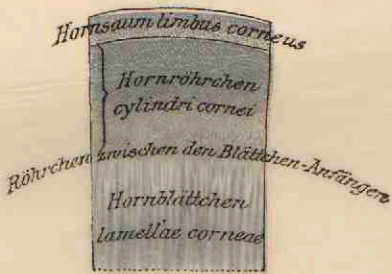 Hornsaum limbus corneus
Hornröhrchen
cylindri cornei
Röhrchen zwischen den Blättchen-Anfängen
Hornblättchen
lamellae corneae